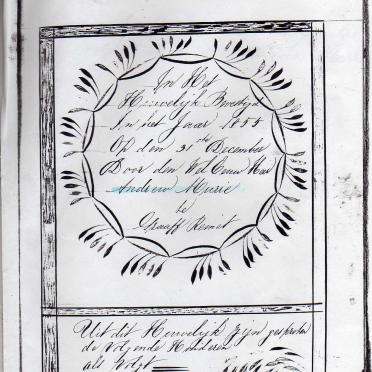 In Het
Huwelijk Bevestigd
In het Jaar 1855
Op den 31ste December
Door den Wel Eerw Heer
Andrew Murray
te
Graaff Reinet
Uit dit Huwelijk zijn gesproten
de volgende Kinderen
als Volgt